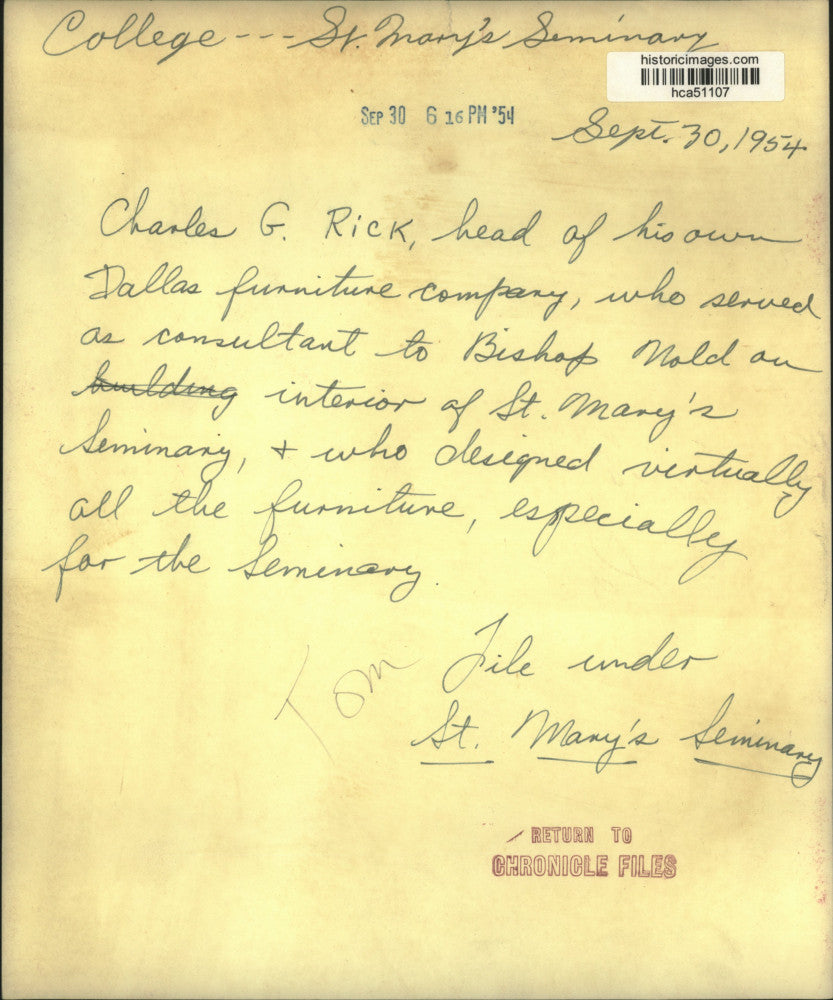 College --- St. Mary's Seminary
historicimages.com
hca51107
SEP 30 6 16 PM '54
Sept. 30, 1954
Charles G. Rick, head of his own
Dallas furniture company, who served
as consultant to Bishop Nold on
building interior of St. Mary's
Seminary, + who designed virtually
all the furniture, especially
for the Seminary.
Tom
File under
St. Mary's Seminary
RETURN TO
CHRONICLE FILES